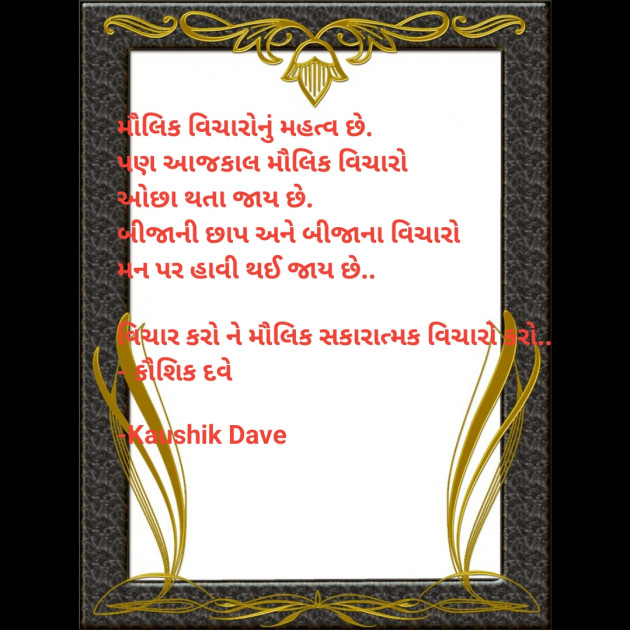 મૌલિક વિચારોનું મહત્વ છે.
પણ આજકાલ મૌલિક વિચારો
ઓછા થતા જાય છે.
બીજાની છાપ અને બીજાના વિચારો
મન પર હાવી થઈ જાય છે..
વિચાર કરો ને મૌલિક સકારાત્મક વિચારો કરો..
- કૌશિક દવે
-Kaushik Dave